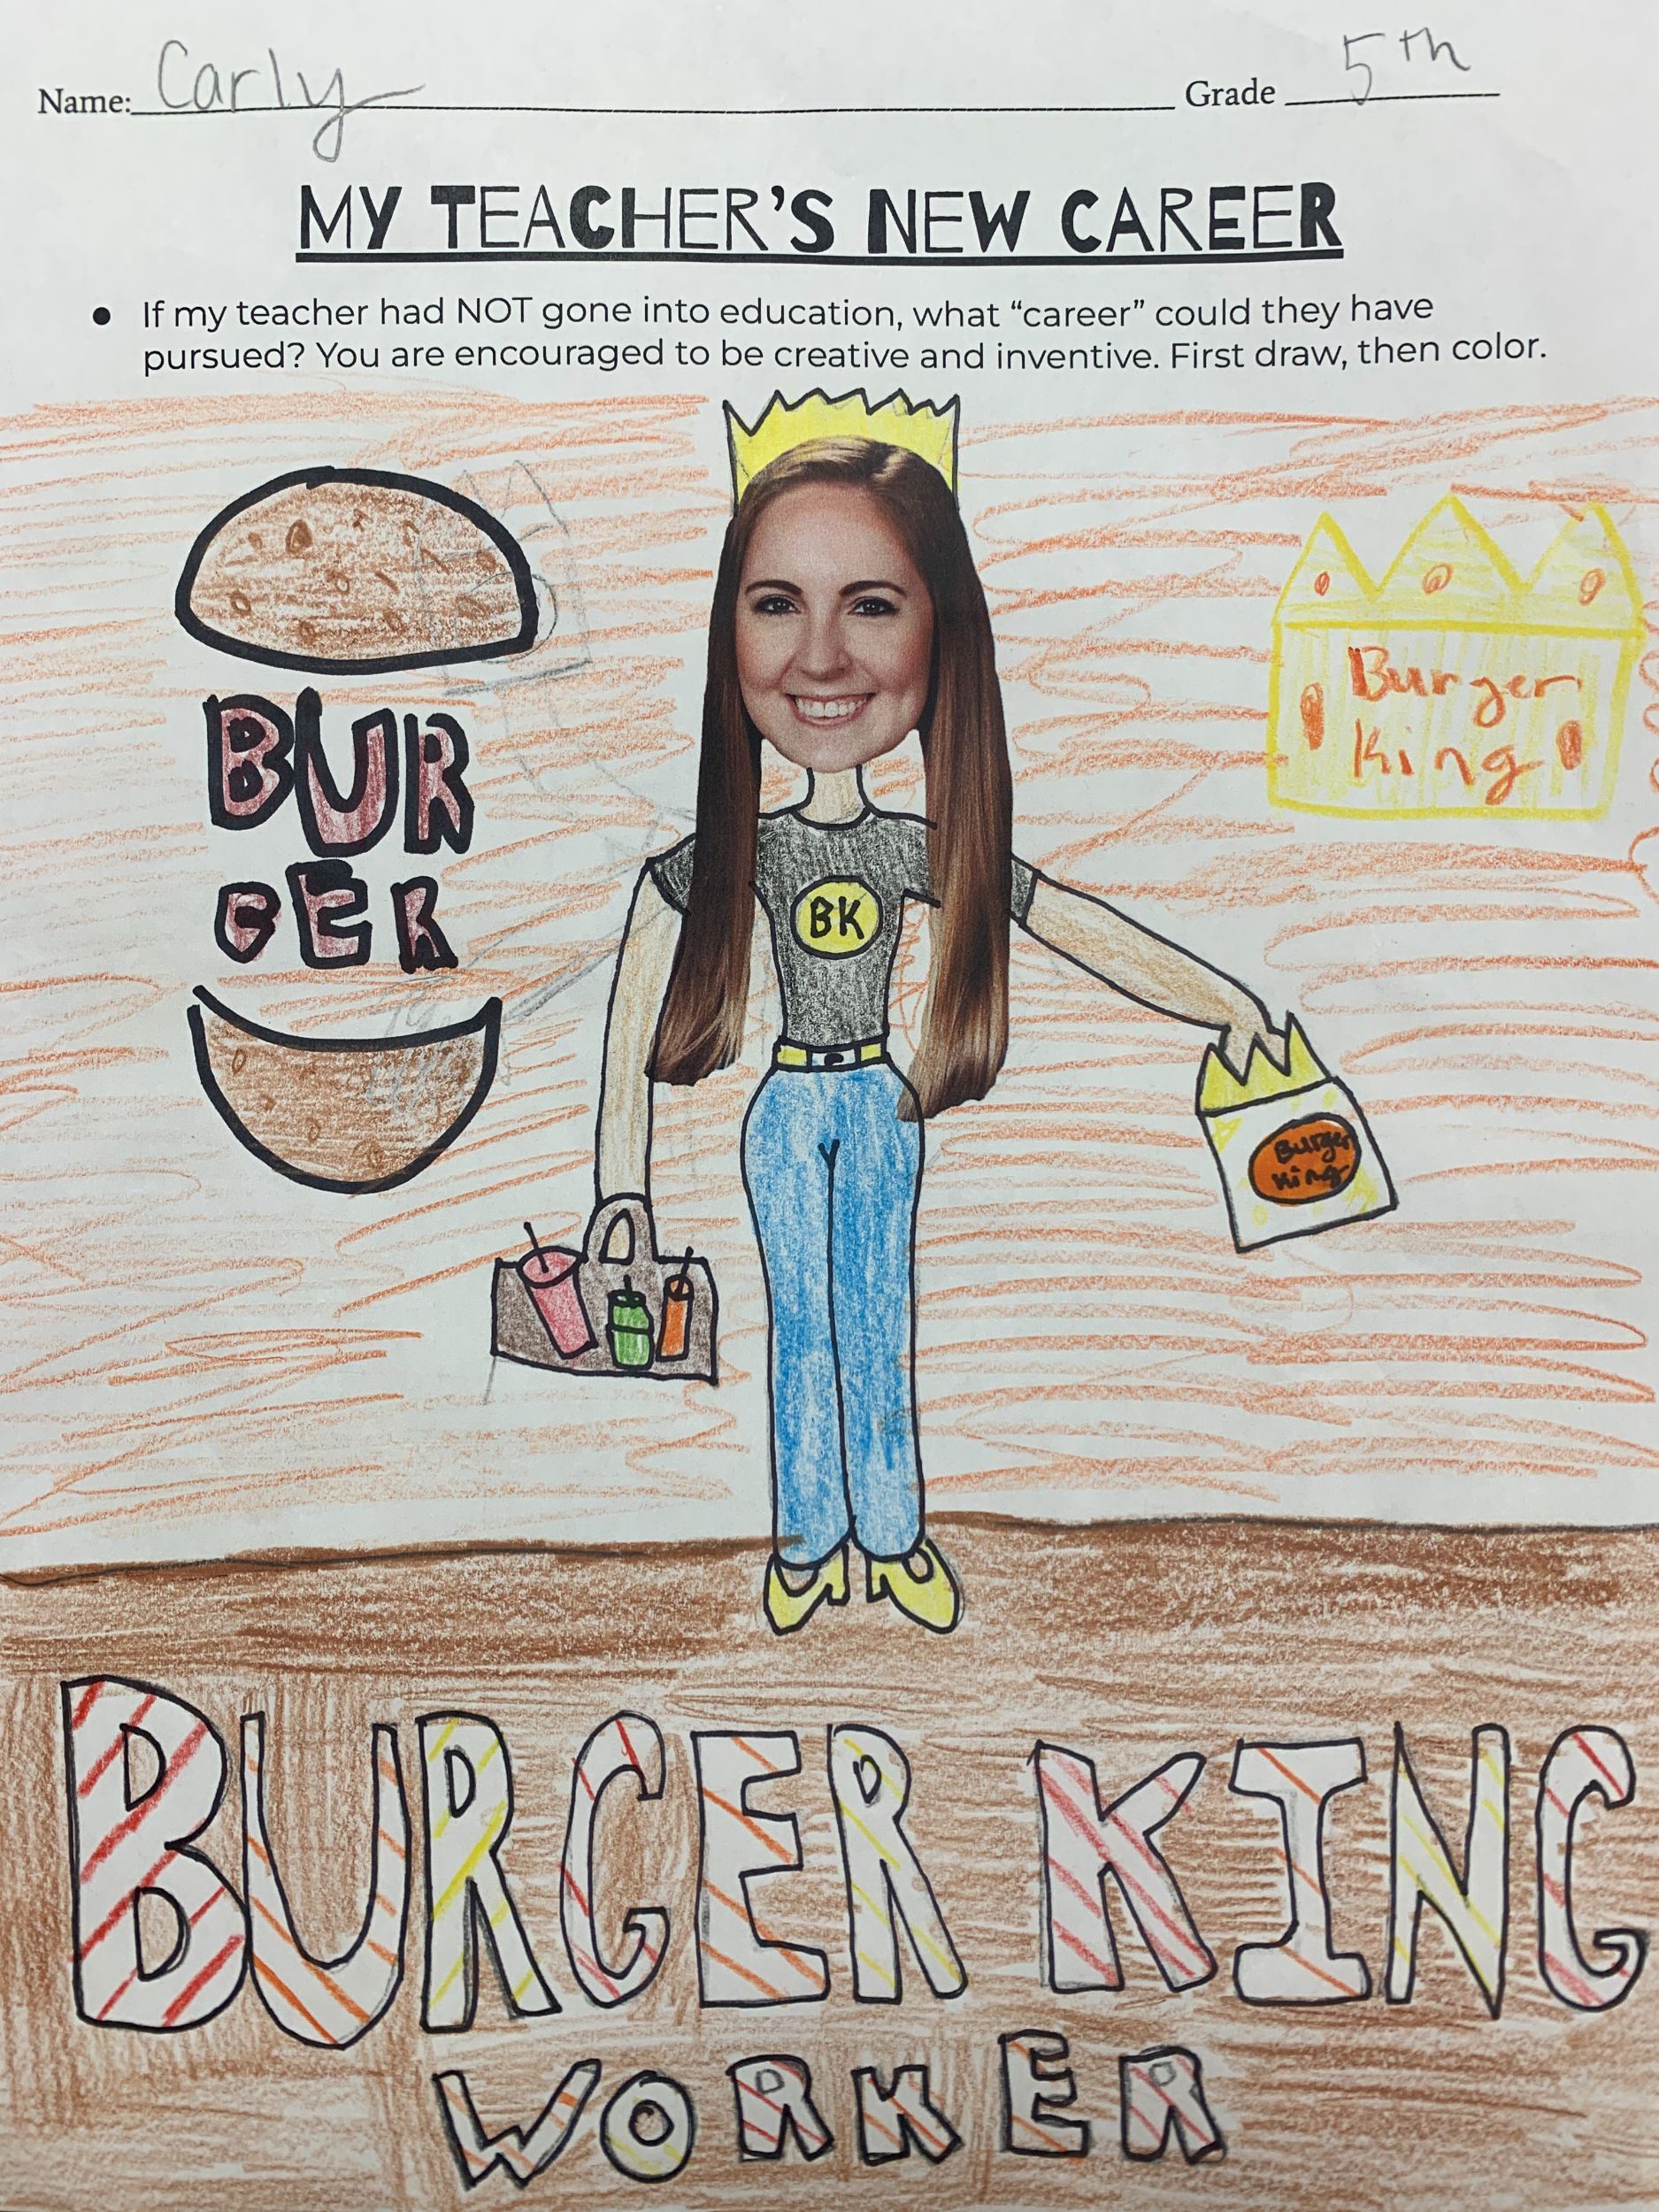 Name: Carly Grade 5th
MY TEACHER'S NEW CAREER
• If my teacher had NOT gone into education, what “career” could they have
pursued? You are encouraged to be creative and inventive. First draw, then color.
BUR
GER
Burger
King
BK
Burger
King
BURGER KING
WORKER